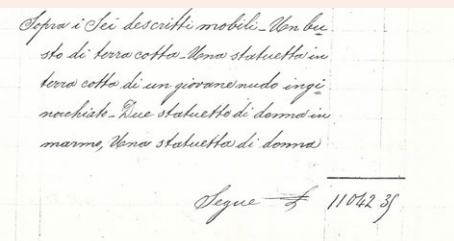 Sopra i Sei descritti mobili - Un bu
sto di terra cotta - Una statuetta in
terra cotta di un giovane nudo ingi
nocchiato - Due statuette di donna in
marmo, Una statuetta di donna
Segue £ 11042 35